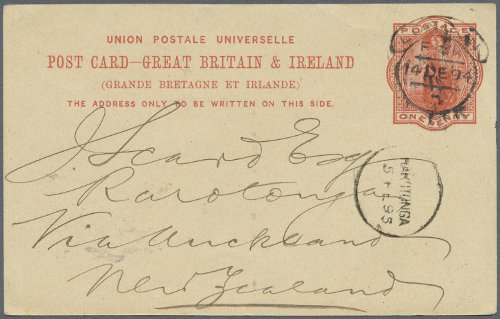 UNION POSTALE UNIVERSELLE
POST CARD—GREAT BRITAIN & IRELAND
(GRANDE BRETAGNE ET IRLANDE)
THE ADDRESS ONLY TO BE WRITTEN ON THIS SIDE.
POSTAGE
ONE PENNY
14 DE 94
J. Scard Esq
Rarotonga
Via Auckland
New Zealand
RAROTONGA
5 FE 95